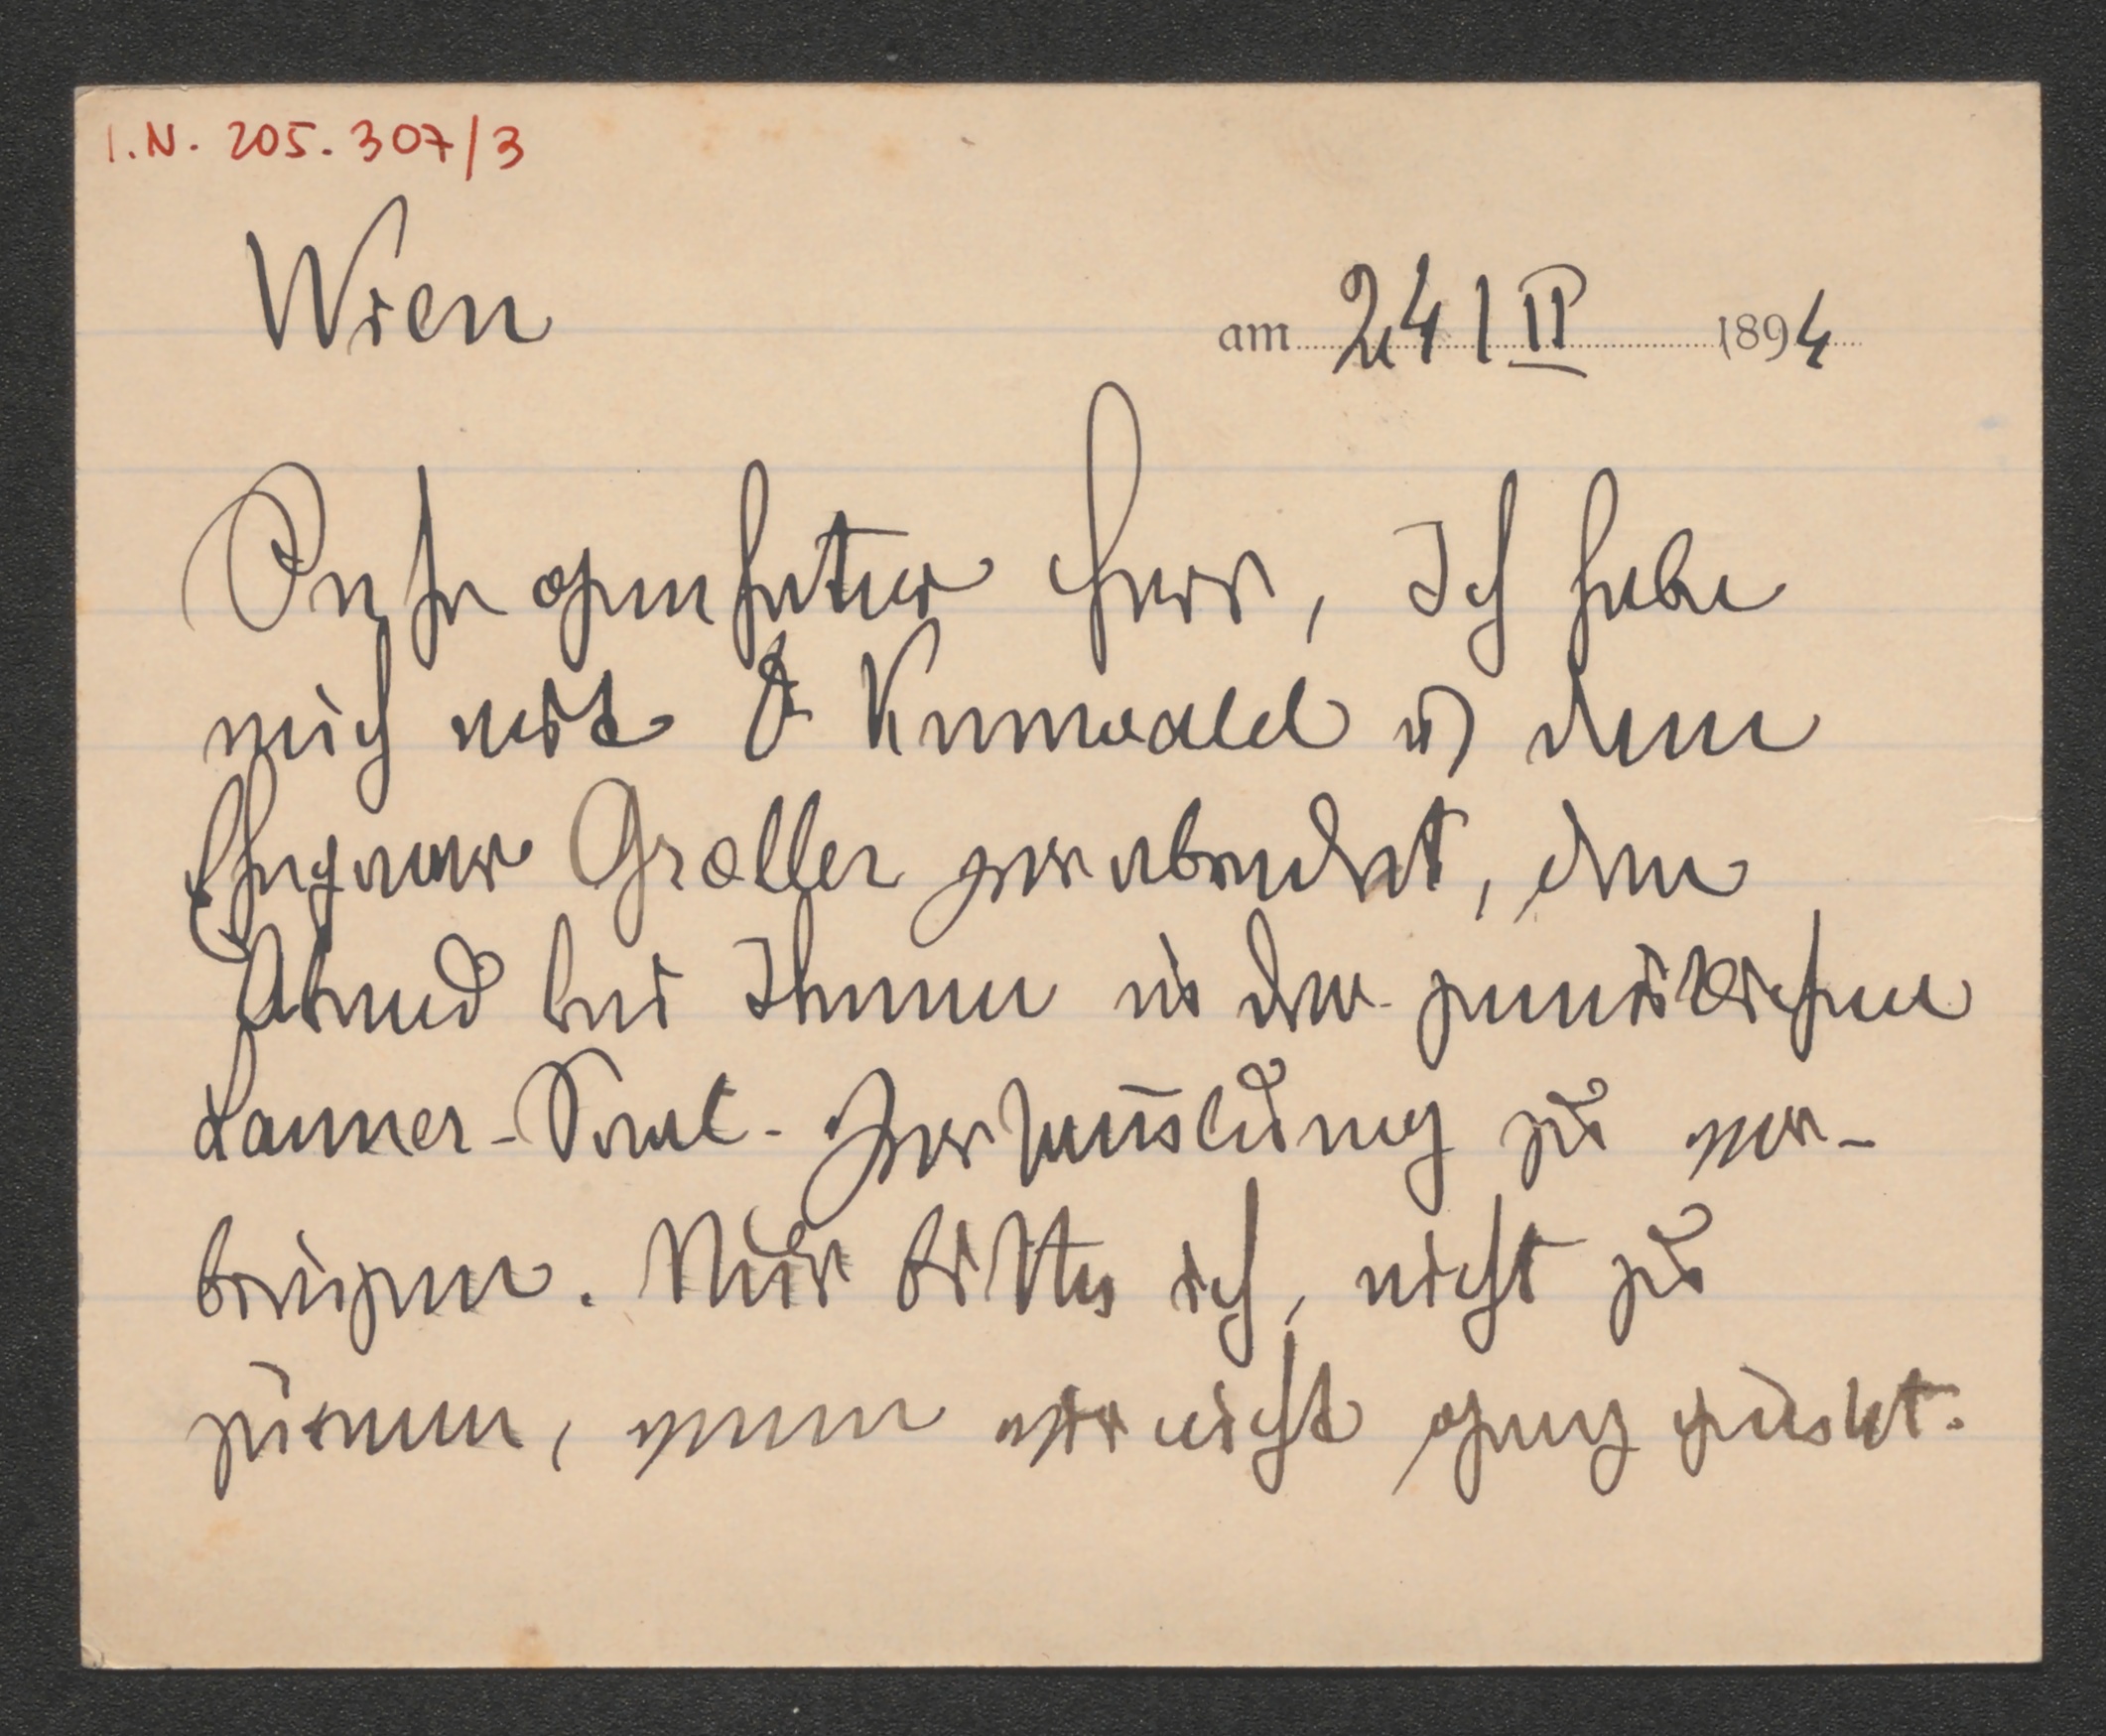 I.N. 205.307/3
Wien
am 24 / II 1894
Sehr geehrter Herr, Ich habe
mich mit Dr Kunwald u dem
Ehepaar Groller verabredet, den
Abend bei Ihnen in der gemütlichen
Lanner-Saal- zu ver-
bringen. Nur bitte ich, nicht zu
zürnen, wenn wir nicht ganz punkt-